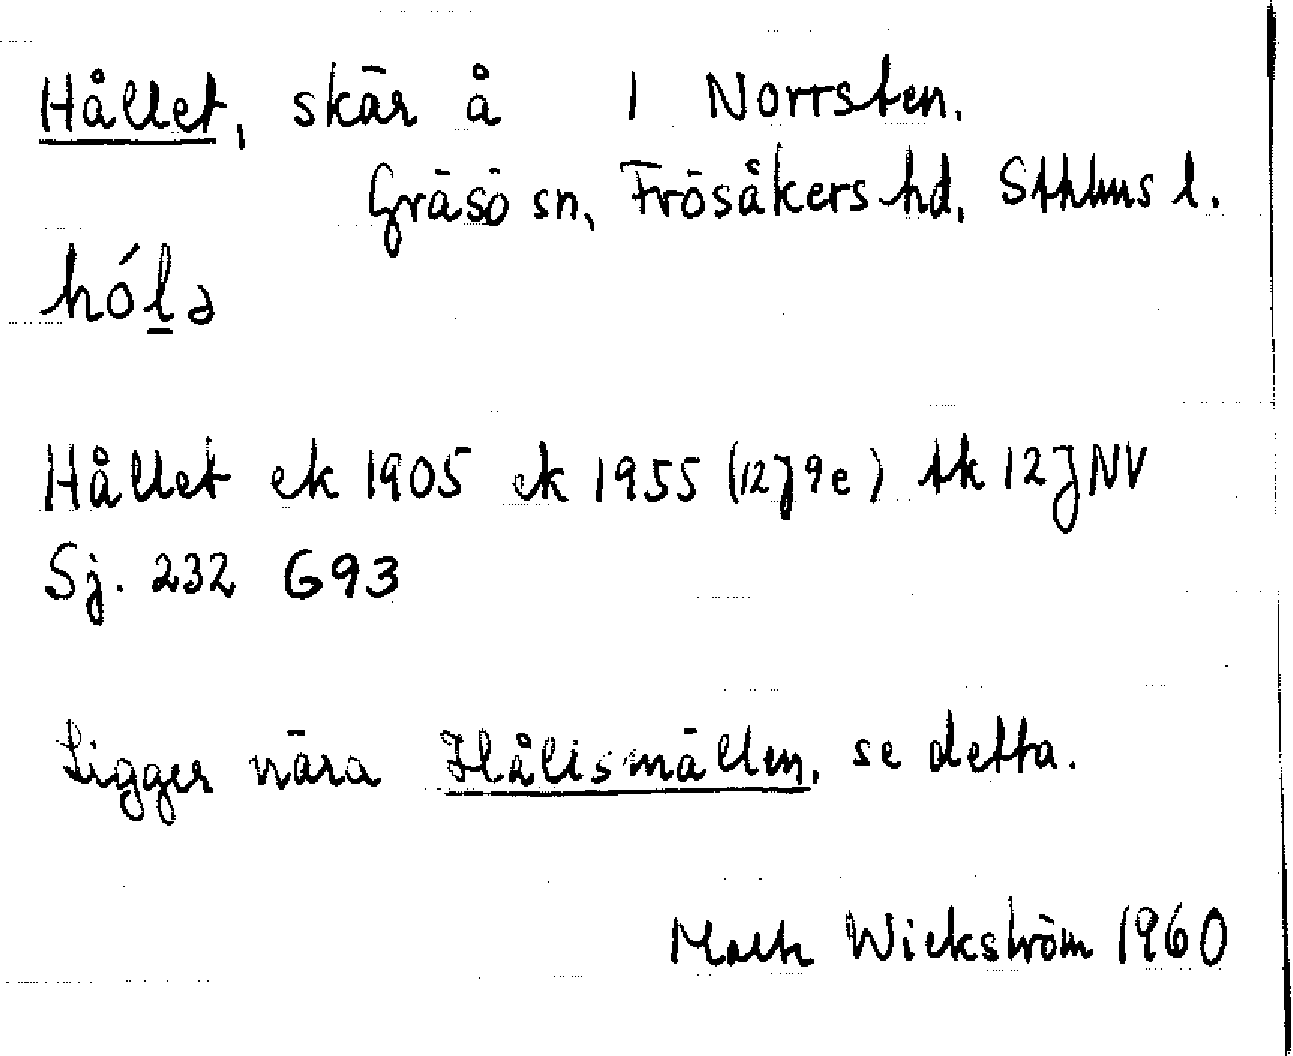 Hållet, skär å 1 Norrsten.
Gräsö sn, Frösåkers hd, Sthlms l.
hólə
Hållet ek 1905 ek 1955 (12J9e) tk 12J NV
Sj. 232 693
Ligger nära Hållsmällen, se detta.
Wickström 1960